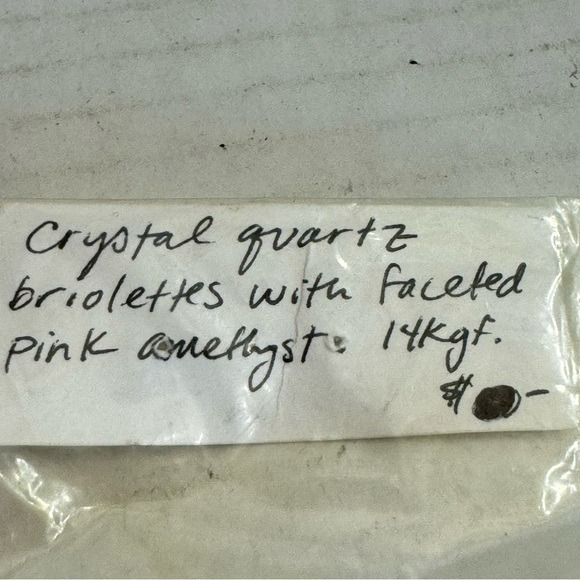 Crystal quartz
briolettes with faceted
pink amethyst. 14kgf.
$ -